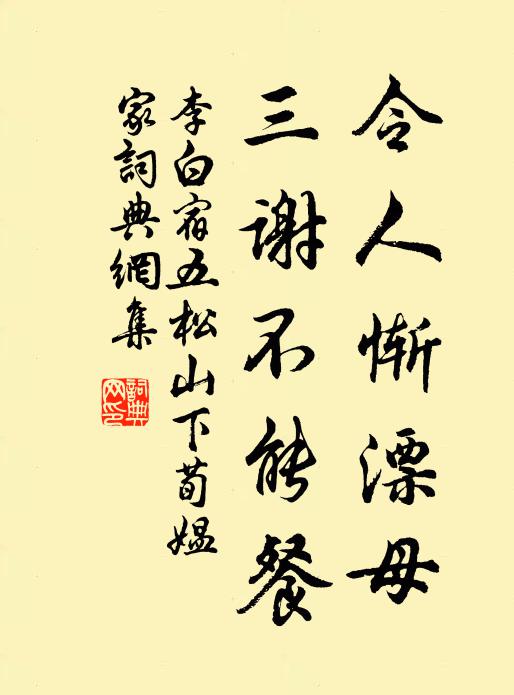 令人惭漂母
三谢不能餐
李白宿五松山下荀媪
家词典網集
詞典
网印